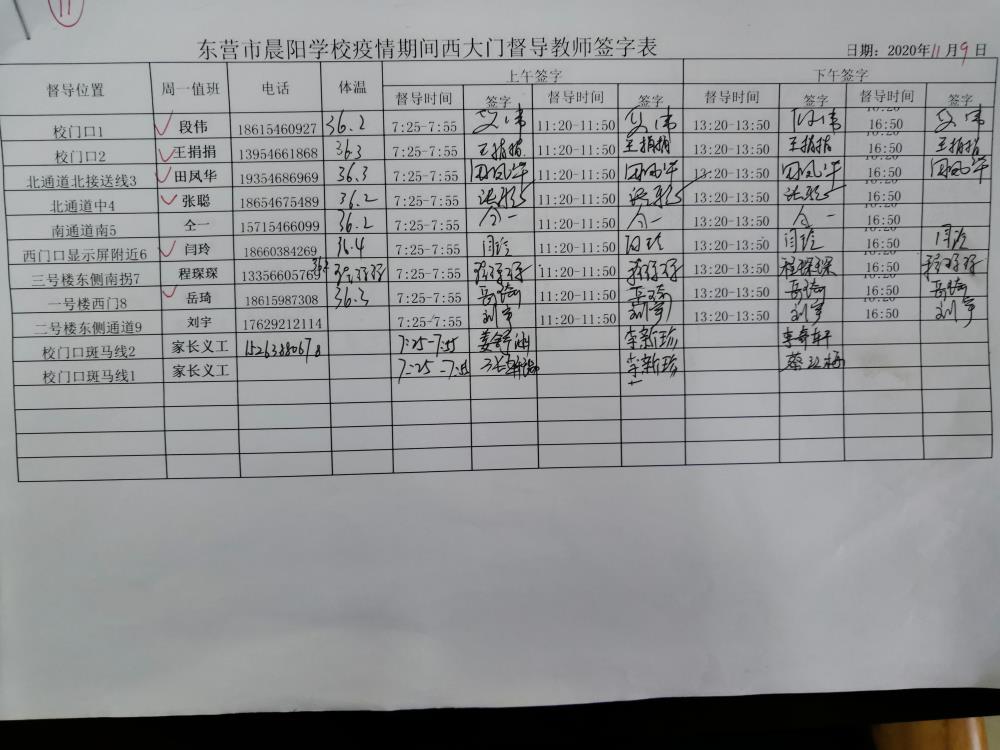 11
东营市晨阳学校疫情期间西大门督导教师签字表
日期：2020年11月9日
督导位置 周一值班 电话 体温 上午签字 下午签字
督导时间 签字 督导时间 签字 督导时间 签字 督导时间 签字
校门口1 段伟 18615460927 36.2 7:25-7:55 11:20-11:50 13:20-13:50 16:50
校门口2 王捐捐 13954661868 36.3 7:25-7:55 王捐捐 11:20-11:50 王捐捐 13:20-13:50 王捐捐 16:50 王捐捐
北通道北接送线3 田凤华 19354686969 36.3 7:25-7:55 田凤华 11:20-11:50 田凤华 13:20-13:50 田凤华 16:50 田凤华
北通道中4 张聪 18654675489 36.2 7:25-7:55 张聪 11:20-11:50 张聪 13:20-13:50 张聪 16:50
南通道南5 仝一 15715466099 36.2 7:25-7:55 仝一 11:20-11:50 仝一 13:20-13:50 仝一 16:50
西门口显示屏附近6 闫玲 18660384269 36.4 7:25-7:55 闫玲 11:20-11:50 闫玲 13:20-13:50 闫玲 16:50 闫玲
三号楼东侧南拐7 程琛琛 13356605769 7:25-7:55 程琛琛 11:20-11:50 程琛琛 13:20-13:50 程琛琛 16:50 程琛琛
一号楼西门8 岳琦 18615987308 36.3 7:25-7:55 岳琦 11:20-11:50 岳琦 13:20-13:50 岳琦 16:50 岳琦
二号楼东侧通道9 刘宇 17629212114 7:25-7:55 刘宇 11:20-11:50 刘宇 13:20-13:50 刘宇 16:50 刘宇
校门口斑马线2 家长义工 15263880678 7:25-7:55 李新珍 李奇轩
校门口斑马线1 家长义工 7:25-7:55 李新珍